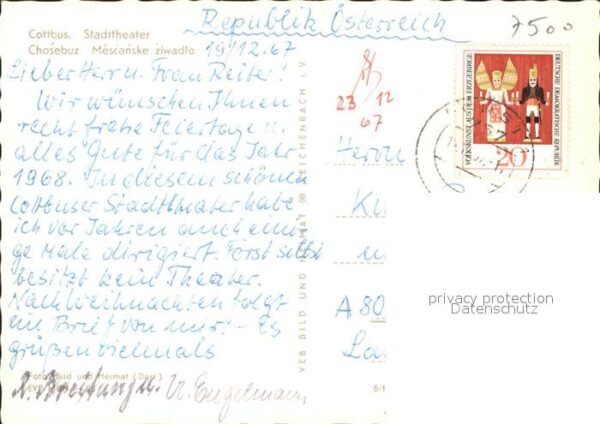 Republik Österreich
7500
Cottbus. Stadttheater
Chośebuz Měsćańske źiwadło
19/12.67
Lieber Herr u. Frau Reiter!
Wir wünschen Ihnen
recht frohe Feiertage u.
alles Gute für das Jahr
1968. In diesem schönen
Cottbuser Stadttheater habe
ich vor Jahren auch eini-
ge Male dirigiert. Forst selbst
besitzt kein Theater.
Nach Weihnachten folgt
ein Brief von mir. – Es
grüßen vielmals
Foto: Bild und Heimat (Darr)
U. Engelmann
VEB BILD UND HEIMAT REICHENBACH i. V.
23 12
67
DEUTSCHE DEMOKRATISCHE REPUBLIK
VOLKSKUNST AUS DEM ERZGEBIRGE
20
Herrn
A 80
privacy protection
Datenschutz